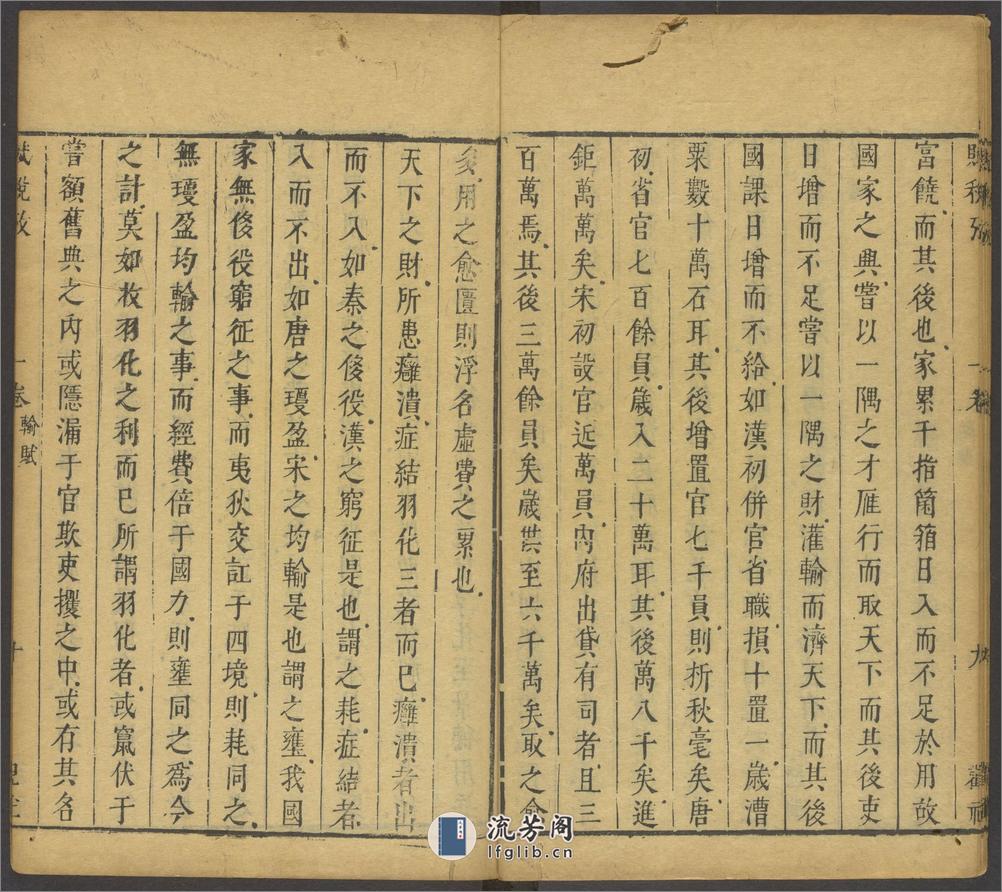 富饒而其後也家累千指箇箱日入而不足於用故
國家之典嘗以一隅之才雁行而取天下而其後吏
日增而不足嘗以一隅之財灌輸而濟天下而其後
國課日增而不給如漢初併官省職損十置一歲漕
粟數十萬石耳其後增置官七千員則析秋毫矣唐
初省官七百餘員歲入二十萬耳其後萬八千矣進
鉅萬萬矣宋初設官近萬員內府出貸有司者且三
百萬焉其後三萬餘員矣歲供至六千萬矣取之愈
多用之愈匱則浮名虛費之累也
天下之財所患癰潰症結羽化三者而已癰潰者出
而不入如秦之俊役漢之窮征是也謂之耗症結者
入而不出如唐之瓊盈宋之均輸是也謂之壅我國
家無俊役窮征之事而夷狄交訌于四境則耗同之
無瓊盈均輸之事而經費倍于國力則壅同之為今
之計莫如救羽化之利而已所謂羽化者或竄伏于
嘗額舊典之內或隱漏于官欺吏攫之中或有其名
賦稅攷
一卷
輸賦
十
流芳阁
lfglib.cn